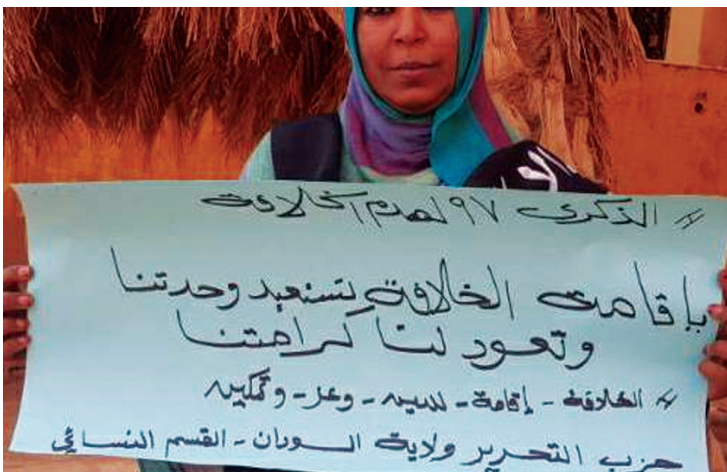 # الذكرى ٩٧ لهدم الخلافة
بإقامت الخلافة نستعيد وحدتنا
وتعود لنا كرامتنا
# الخلافة - إقامة - للدين - وعز - وتمكين
حزب التحرير ولاية السودان - القسم النسائي